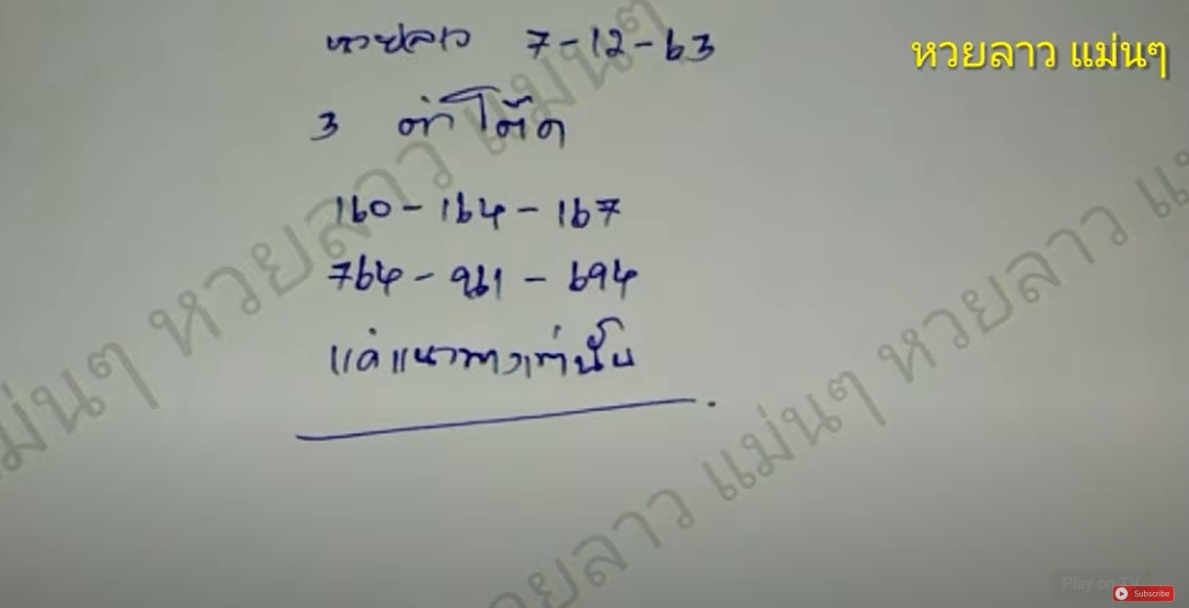 หวยลาว 7-12-63
หวยลาว แม่นๆ
3 ตัวโต๊ด
160-164-167
764-961-694
แค่แนวทางเท่านั้น
หวยลาว แม่นๆ
หวยลาว แม่นๆ
Play on TV
Subscribe